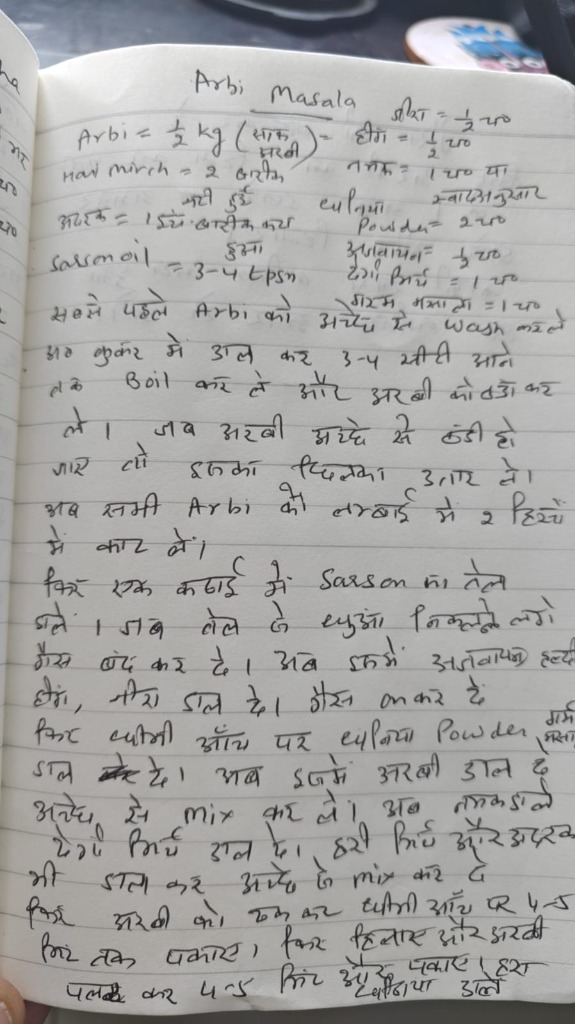 Arbi Masala
जीरा = 1/2 च०
Arbi = 1/2 kg (साफ अरबी) = हींग = 1/2 च०
Hari mirch = 2 बारीक कटी हुई
नमक = 1 च० या स्वादअनुसार
अदरक = 1 इंच बारीक कटा हुआ
धनिया Powder = 2 च०
अजवायन = 1/2 च०
Sarson oil = 3-4 tpsn
देगी मिर्च = 1 च०
गरम मसाला = 1 च०
सबसे पहले Arbi को अच्छे से wash कर ले
अब कुकर में डाल कर 3-4 सीटी आने
तक Boil कर ले और अरबी को ठंडा कर
ले। जब अरबी अच्छे से ठंडी हो
जाए तो इसका छिलका उतार ले।
अब सभी Arbi को लम्बाई में 2 हिस्सों
में काट लें।
फिर एक कढाई में Sarson का तेल
डाले। जब तेल से धुआं निकलने लगे
गैस बंद कर दे। अब इसमें अजवायन हल्दी
हींग, जीरा डाल दे। गैस on कर दें
फिर धीमी आँच पर धनिया Powder गर्म मसाला
डाल दे। अब इसमें अरबी डाल दे
अच्छे से mix कर ले। अब नमक डाले
देगी मिर्च डाल दे। हरी मिर्च और अदरक
भी डाल कर अच्छे से mix कर दे
फिर अरबी को ढक कर धीमी आँच पर 4-5
मिंट तक पकाए। फिर हिलाए और अरबी
पलट कर 4-5 मिंट और पकाए। हरा
धनिया डाले